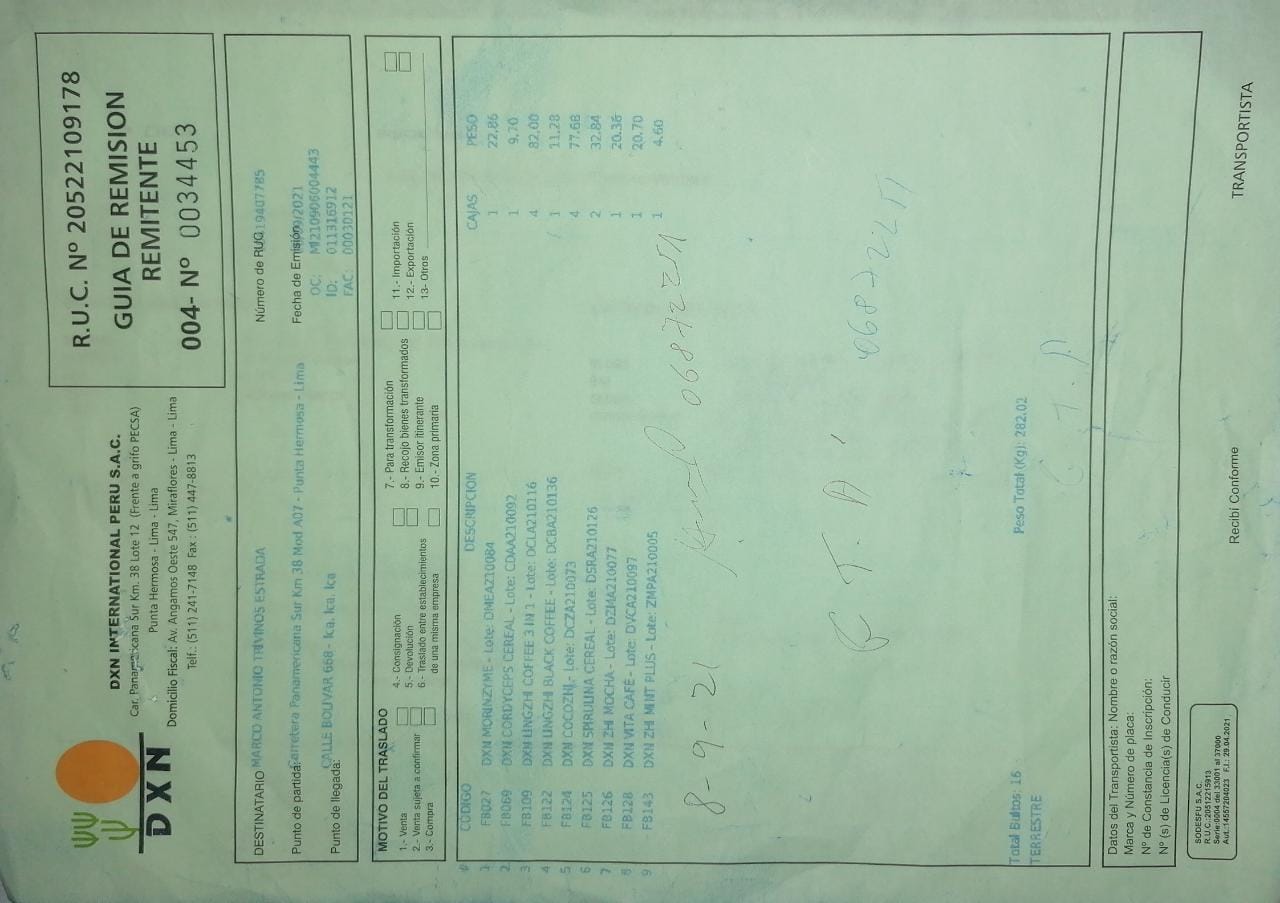 DXN
DXN INTERNATIONAL PERU S.A.C.
Car. Panamericana Sur Km. 38 Lote 12 (Frente a grifo PECSA)
Punta Hermosa - Lima - Lima
Domicilio Fiscal: Av. Angamos Oeste 547, Miraflores - Lima - Lima
Telf.: (511) 241-7148 Fax : (511) 447-8813
R.U.C. Nº 20522109178
GUIA DE REMISION
REMITENTE
004- Nº 0034453
DESTINATARIO MARCO ANTONIO TRIVINOS ESTRADA Número de RUC 19407785
Punto de partida: Carretera Panamericana Sur Km 38 Mod A07 - Punta Hermosa - Lima Fecha de Emisión /2021
CALLE BOLIVAR 668 - Ica. Ica. Ica OC: MI210906004443
Punto de llegada: ID: 011316912
FAC: 00030121
MOTIVO DEL TRASLADO
1.- Venta 4.- Consignación 7.- Para transformación 11.- Importación
2.- Venta sujeta a confirmar 5.- Devolución 8.- Recojo bienes transformados 12.- Exportación
3.- Compra 6.- Traslado entre establecimientos de una misma empresa 9.- Emisor itinerante 13- Otros
10.- Zona primaria
# CODIGO DESCRIPCION CAJAS PESO
1 FB027 DXN MORINZYME - Lote: DMEA210084 1 22.86
2 FB069 DXN CORDYCEPS CEREAL - Lote: CDAA210092 1 9.70
3 FB109 DXN LINGZHI COFFEE 3 IN 1 - Lote: DCLA210116 4 82.00
4 FB122 DXN LINGZHI BLACK COFFEE - Lote: DCBA210136 1 11.28
5 FB124 DXN COCOZHI - Lote: DCZA210073 4 77.68
6 FB125 DXN SPIRULINA CEREAL - Lote: DSRA210126 2 32.84
7 FB126 DXN ZHI MOCHA - Lote: DZMA210077 1 20.36
8 FB128 DXN VITA CAFÉ - Lote: DVCA210097 1 20.70
9 FB143 DXN ZHI MINT PLUS - Lote: ZMPA210005 1 4.60
8-9-21
T. A.
Total Bultos: 16 Peso Total (Kg): 282.02
TERRESTRE
Datos del Transportista: Nombre o razón social:
Marca y Número de placa:
Nº de Constancia de Inscripción:
Nº (s) de Licencia(s) de Conducir
SODESFU S.A.C.
R.U.C.:20512215913
Serie:0004 del 33001 al 37000
Aut.:14557204023 F.I.: 29.04.2021
Recibí Conforme
TRANSPORTISTA